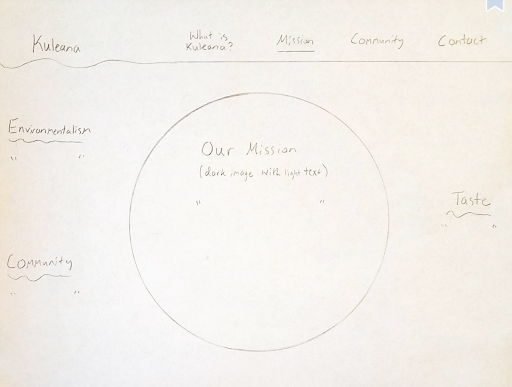 Kuleana
What is
Kuleana?
Mission
Community
Contact
Environmentalism
" "
Our Mission
(dark image with light text)
" "
Taste
" "
Community
" "